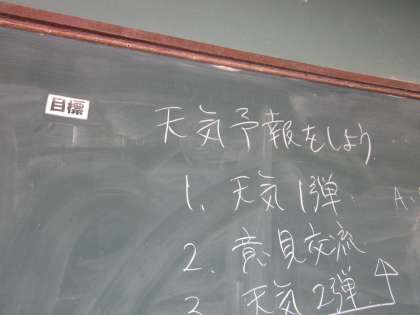 目標
天気予報をしよう
1、天気1弾
A
2、意見交流
3 天気2弾